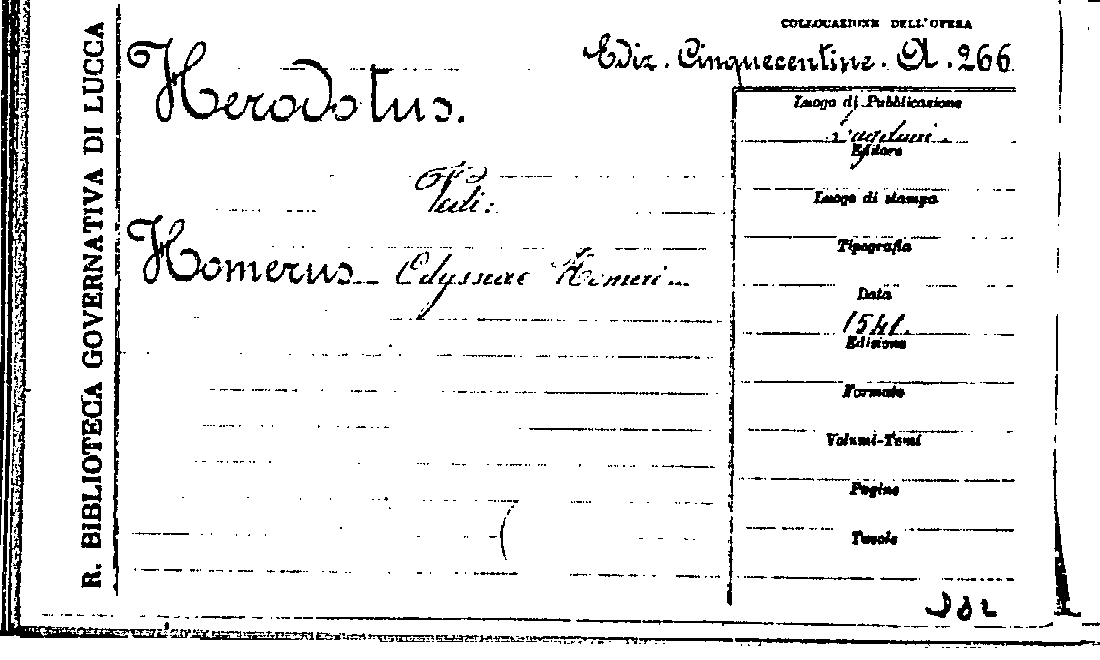 R. BIBLIOTECA GOVERNATIVA DI LUCCA
COLLOCAZIONE DELL'OPERA
Ediz. Cinquecentine. A. 266
Herodotus.
Vedi:
Homerus Odysseae Homeri
Luogo di Pubblicazione
Editore
Luogo di stampa
Tipografia
Data
1541.
Edizione
Formato
Volumi-Tomi
Pagine
Tavole